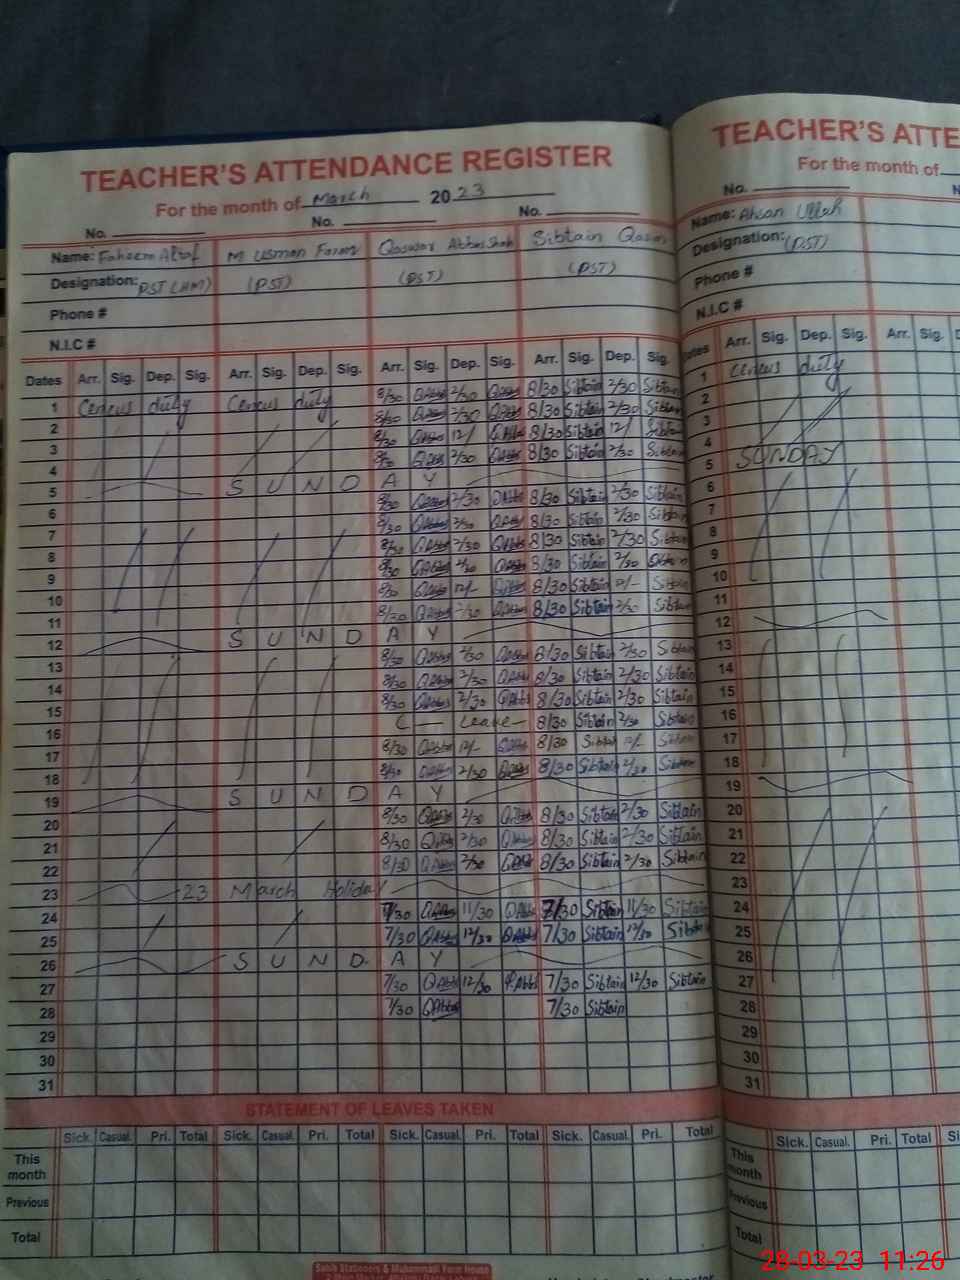 TEACHER'S ATTENDANCE REGISTER
For the month of March 2023
No. No. No.
Name: Faheem Altaf M Usman Qaswar Abbas Shah Sibtain Qasim
Designation: PST (HM) (PST) (PST) (PST)
Phone #
N.I.C #
Dates Arr. Sig. Dep. Sig. Arr. Sig. Dep. Sig. Arr. Sig. Dep. Sig. Arr. Sig. Dep. Sig.
1 Census duty Census duty 8/30 QAbbs 2/30 QAbbs 8/30 Sibtain 2/30 Sibtain
2 8/30 QAbbs 2/30 QAbbs 8/30 Sibtain 2/30 Sibtain
3 8/30 QAbbs 12/ QAbbs 8/30 Sibtain 12/ Sibtain
4 8/30 QAbbs 2/30 QAbbs 8/30 Sibtain 2/30 Sibtain
5 S U N D A Y
6 8/30 QAbbs 2/30 QAbbs 8/30 Sibtain 2/30 Sibtain
7 8/30 QAbbs 2/30 QAbbs 8/30 Sibtain 2/30 Sibtain
8 8/30 QAbbs 2/30 QAbbs 8/30 Sibtain 2/30 Sibtain
9 8/30 QAbbs 2/30 QAbbs 8/30 Sibtain 2/30 Sibtain
10 8/30 QAbbs 12/- QAbbs 8/30 Sibtain 12/- Sibtain
11 8/30 QAbbs 2/30 QAbbs 8/30 Sibtain 2/30 Sibtain
12 S U N D A Y
13 8/30 QAbbs 2/30 QAbbs 8/30 Sibtain 2/30 Sibtain
14 8/30 QAbbs 2/30 QAbbs 8/30 Sibtain 2/30 Sibtain
15 8/30 QAbbs 2/30 QAbbs 8/30 Sibtain 2/30 Sibtain
16 C — Leave - 8/30 Sibtain 2/30 Sibtain
17 8/30 QAbbs 12/- QAbbs 8/30 Sibtain 12/- Sibtain
18 8/30 QAbbs 2/30 QAbbs 8/30 Sibtain 2/30 Sibtain
19 S U N D A Y
20 8/30 QAbbs 2/30 QAbbs 8/30 Sibtain 2/30 Sibtain
21 8/30 QAbbs 2/30 QAbbs 8/30 Sibtain 2/30 Sibtain
22 8/30 QAbbs 2/30 QAbbs 8/30 Sibtain 2/30 Sibtain
23 23 March Holiday
24 7/30 QAbbs 11/30 QAbbs 7/30 Sibtain 11/30 Sibtain
25 7/30 QAbbs 12/30 QAbbs 7/30 Sibtain 12/30 Sibtain
26 S U N D A Y
27 7/30 QAbbs 12/30 QAbbs 7/30 Sibtain 12/30 Sibtain
28 7/30 QAbbas 7/30 Sibtain
29
30
31
STATEMENT OF LEAVES TAKEN
Sick. Casual. Pri. Total Sick. Casual. Pri. Total Sick. Casual. Pri. Total Sick. Casual. Pri. Total
This month
Previous
Total
Sahib Stationers & Muhammadi Yarn House
TEACHER'S ATTE
For the month of
No.
Name: Ahsan Ullah
Designation: (PST)
Phone #
N.I.C #
Dates Arr. Sig. Dep. Sig. Arr. Sig.
1 Census duty
2
3
4
5 SUNDAY
6
7
8
9
10
11
12
13
14
15
16
17
18
19
20
21
22
23
24
25
26
27
28
29
30
31
Sick. Casual. Pri. Total Si
This month
Previous
Total
28-03-23 11:26